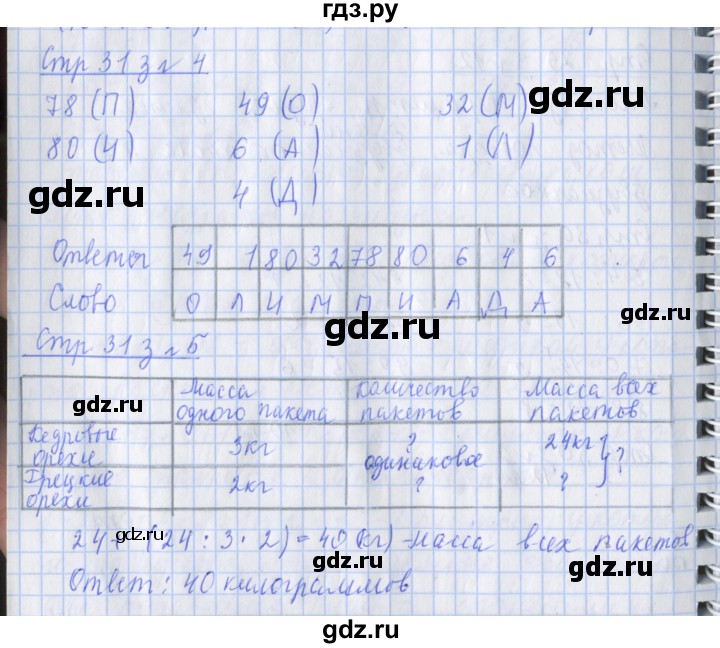 гдз.ру
Стр 31 з № 4
78 (П) 49 (О) 32 (М)
gdz.ru
80 (И) 6 (А) 1 (Л)
gdz.ru gdz.ru
4 (Д)
Ответы 49 1 80 32 78 80 6 4 6
Слово О Л И М П И А Д А
gdz.ru
Стр 31 з № 5
gdz.ru
Масса одного пакета Количество пакетов Масса всех пакетов
gdz.ru
Кедровые орехи 3кг ? 24кг ?
одинаковое
Грецкие орехи 2кг ? ?
24 + (24 : 3 · 2) = 40 (кг) - масса всех пакетов
gdz.ru gdz.ru gdz.ru
Ответ: 40 килограммов
gdz.ru
gdz.ru